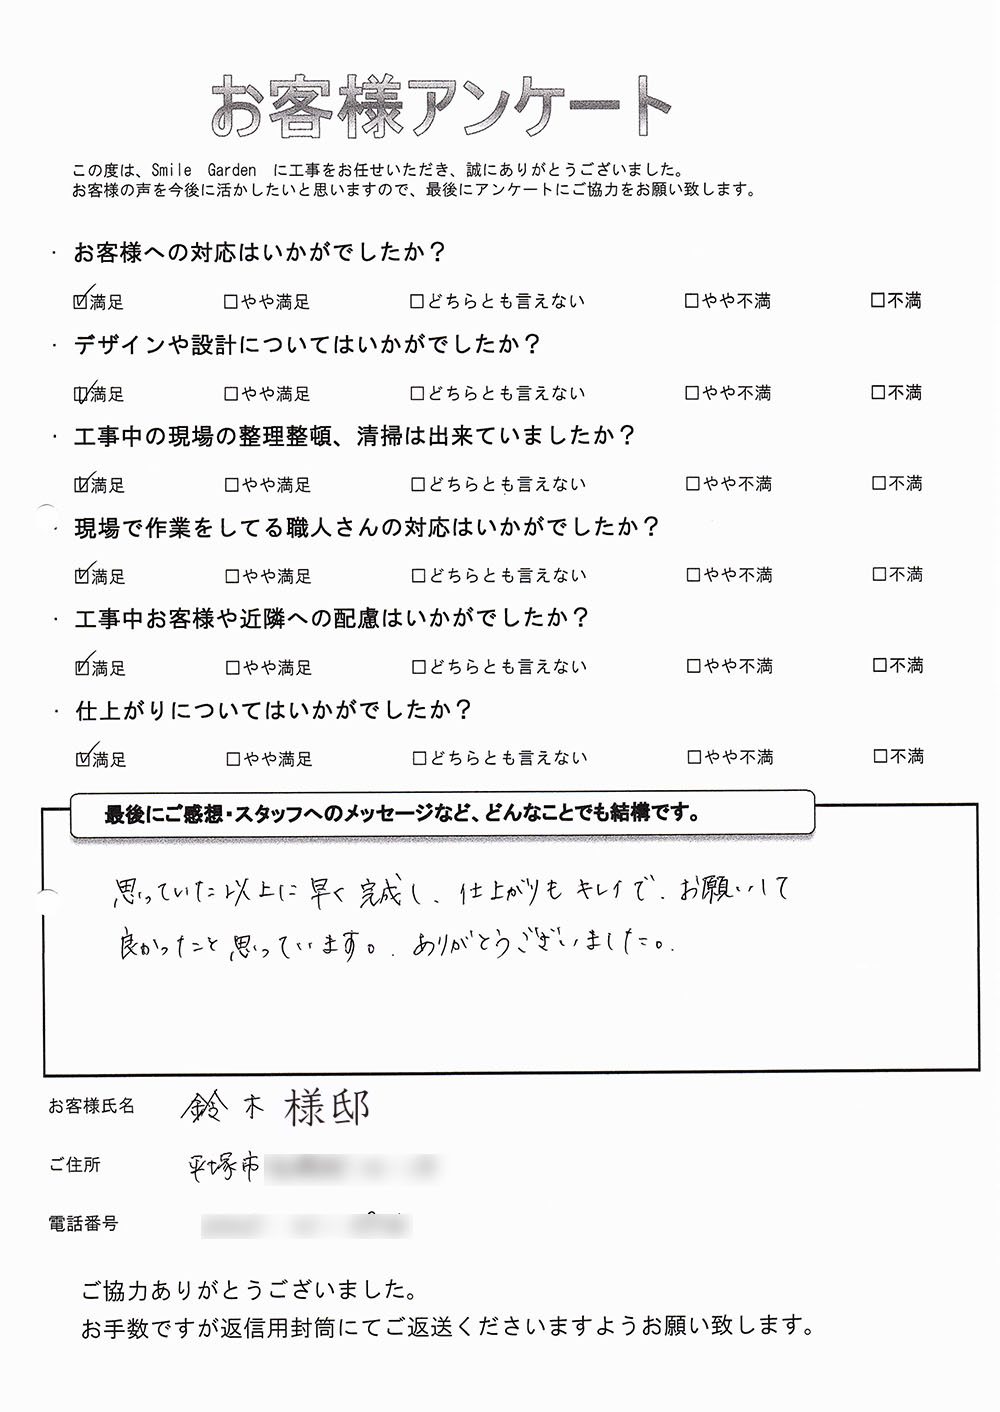 お客様アンケート
この度は、Smile Garden に工事をお任せいただき、誠にありがとうございました。
お客様の声を今後に活かしたいと思いますので、最後にアンケートにご協力をお願い致します。
・ お客様への対応はいかがでしたか？
☑満足 □やや満足 □どちらとも言えない □やや不満 □不満
・ デザインや設計についてはいかがでしたか？
☑満足 □やや満足 □どちらとも言えない □やや不満 □不満
・ 工事中の現場の整理整頓、清掃は出来ていましたか？
☑満足 □やや満足 □どちらとも言えない □やや不満 □不満
・ 現場で作業をしてる職人さんの対応はいかがでしたか？
☑満足 □やや満足 □どちらとも言えない □やや不満 □不満
・ 工事中お客様や近隣への配慮はいかがでしたか？
☑満足 □やや満足 □どちらとも言えない □やや不満 □不満
・ 仕上がりについてはいかがでしたか？
☑満足 □やや満足 □どちらとも言えない □やや不満 □不満
最後にご感想・スタッフへのメッセージなど、どんなことでも結構です。
思っていた以上に早く完成し、仕上がりもキレイで、お願いして
良かったこと思っています。ありがとうございました。
お客様氏名 鈴木様邸
ご住所 平塚市
電話番号
ご協力ありがとうございました。
お手数ですが返信用封筒にてご返送くださいますようお願い致します。